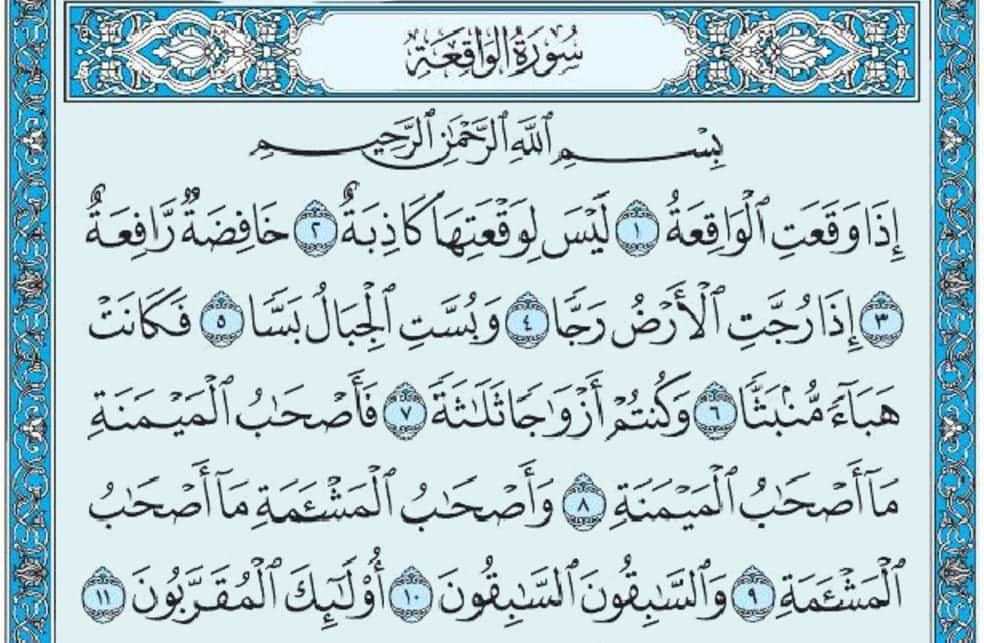 سُورَةُ الوَاقِعَةِ
بِسْمِ ٱللَّهِ ٱلرَّحْمَٰنِ ٱلرَّحِيمِ
إِذَا وَقَعَتِ ٱلْوَاقِعَةُ ١ لَيْسَ لِوَقْعَتِهَا كَاذِبَةٌ ٢ خَافِضَةٌ رَّافِعَةٌ
٣ إِذَا رُجَّتِ ٱلْأَرْضُ رَجًّا ٤ وَبُسَّتِ ٱلْجِبَالُ بَسًّا ٥ فَكَانَتْ
هَبَآءً مُّنۢبَثًّا ٦ وَكُنتُمْ أَزْوَٰجًا ثَلَٰثَةً ٧ فَأَصْحَٰبُ ٱلْمَيْمَنَةِ
مَآ أَصْحَٰبُ ٱلْمَيْمَنَةِ ٨ وَأَصْحَٰبُ ٱلْمَشْـَٔمَةِ مَآ أَصْحَٰبُ
ٱلْمَشْـَٔمَةِ ٩ وَٱلسَّٰبِقُونَ ٱلسَّٰبِقُونَ ١٠ أُو۟لَٰٓئِكَ ٱلْمُقَرَّبُونَ ١١